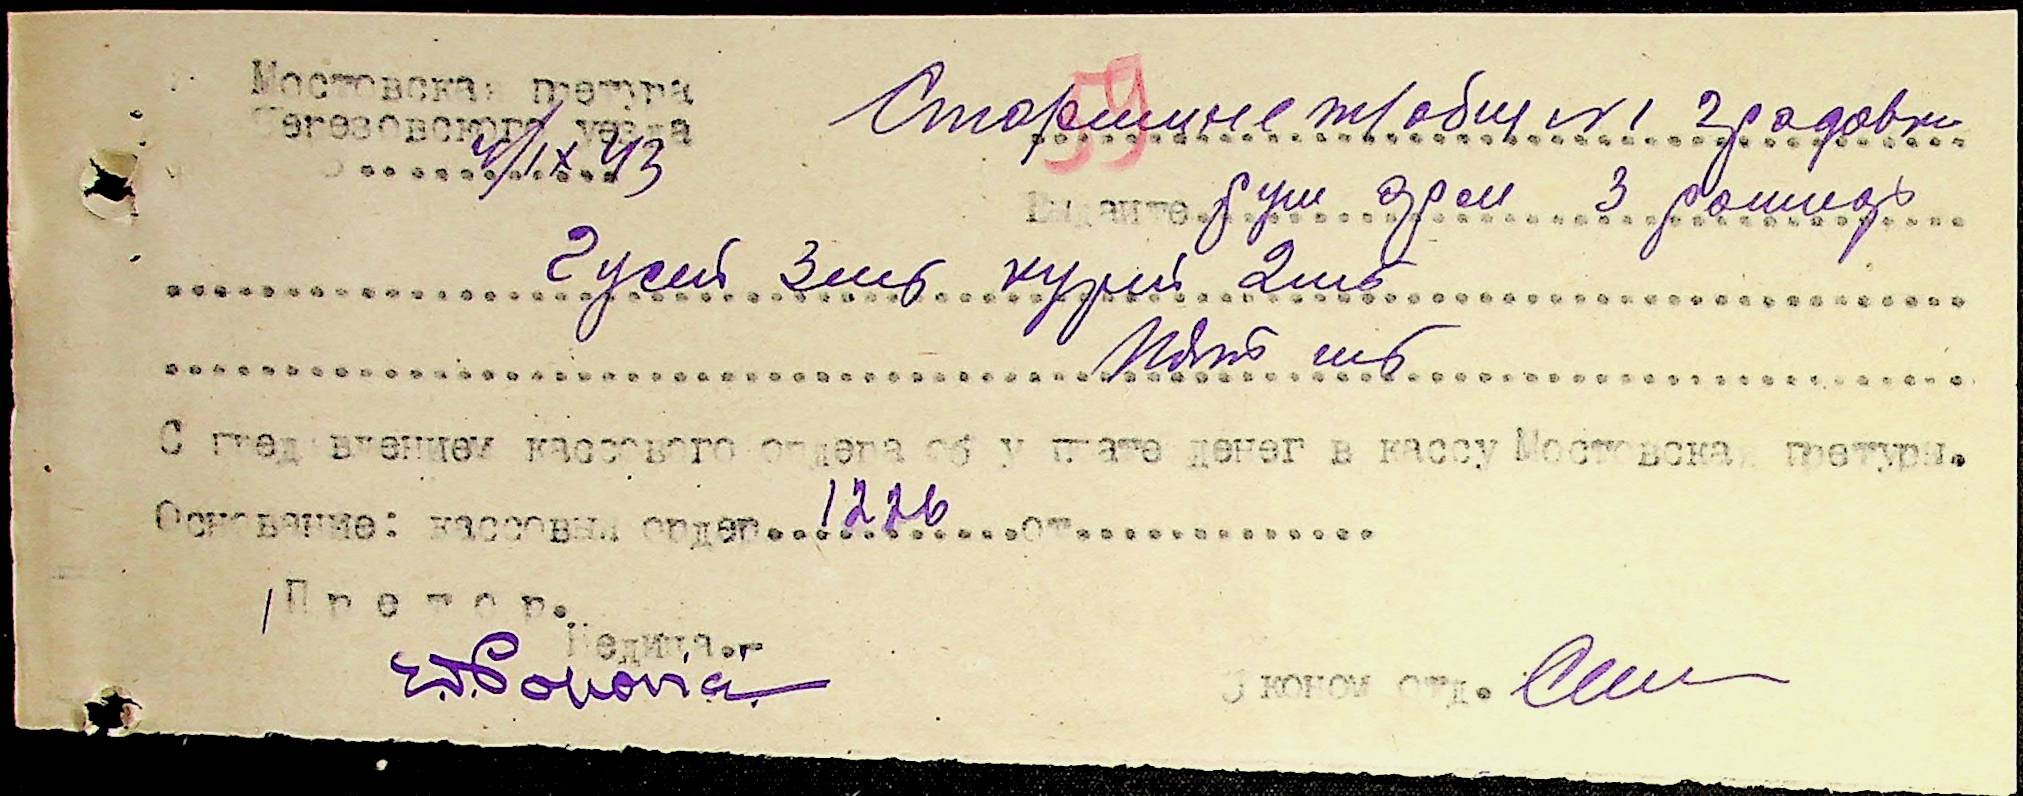 Мостовская претура
Березовского уезда
4/IX 43
59
Старшине т/общ № 1 Градовки
Выдайте
3 лошадь
Гусей 3 шт курей 2 шт
Пять шт
С пред влением кассового ордера об уплате денег в кассу Мостовская претуры.
Основание: кассовый ордер 1226 от
Претор.
Педица.
Економ отд.